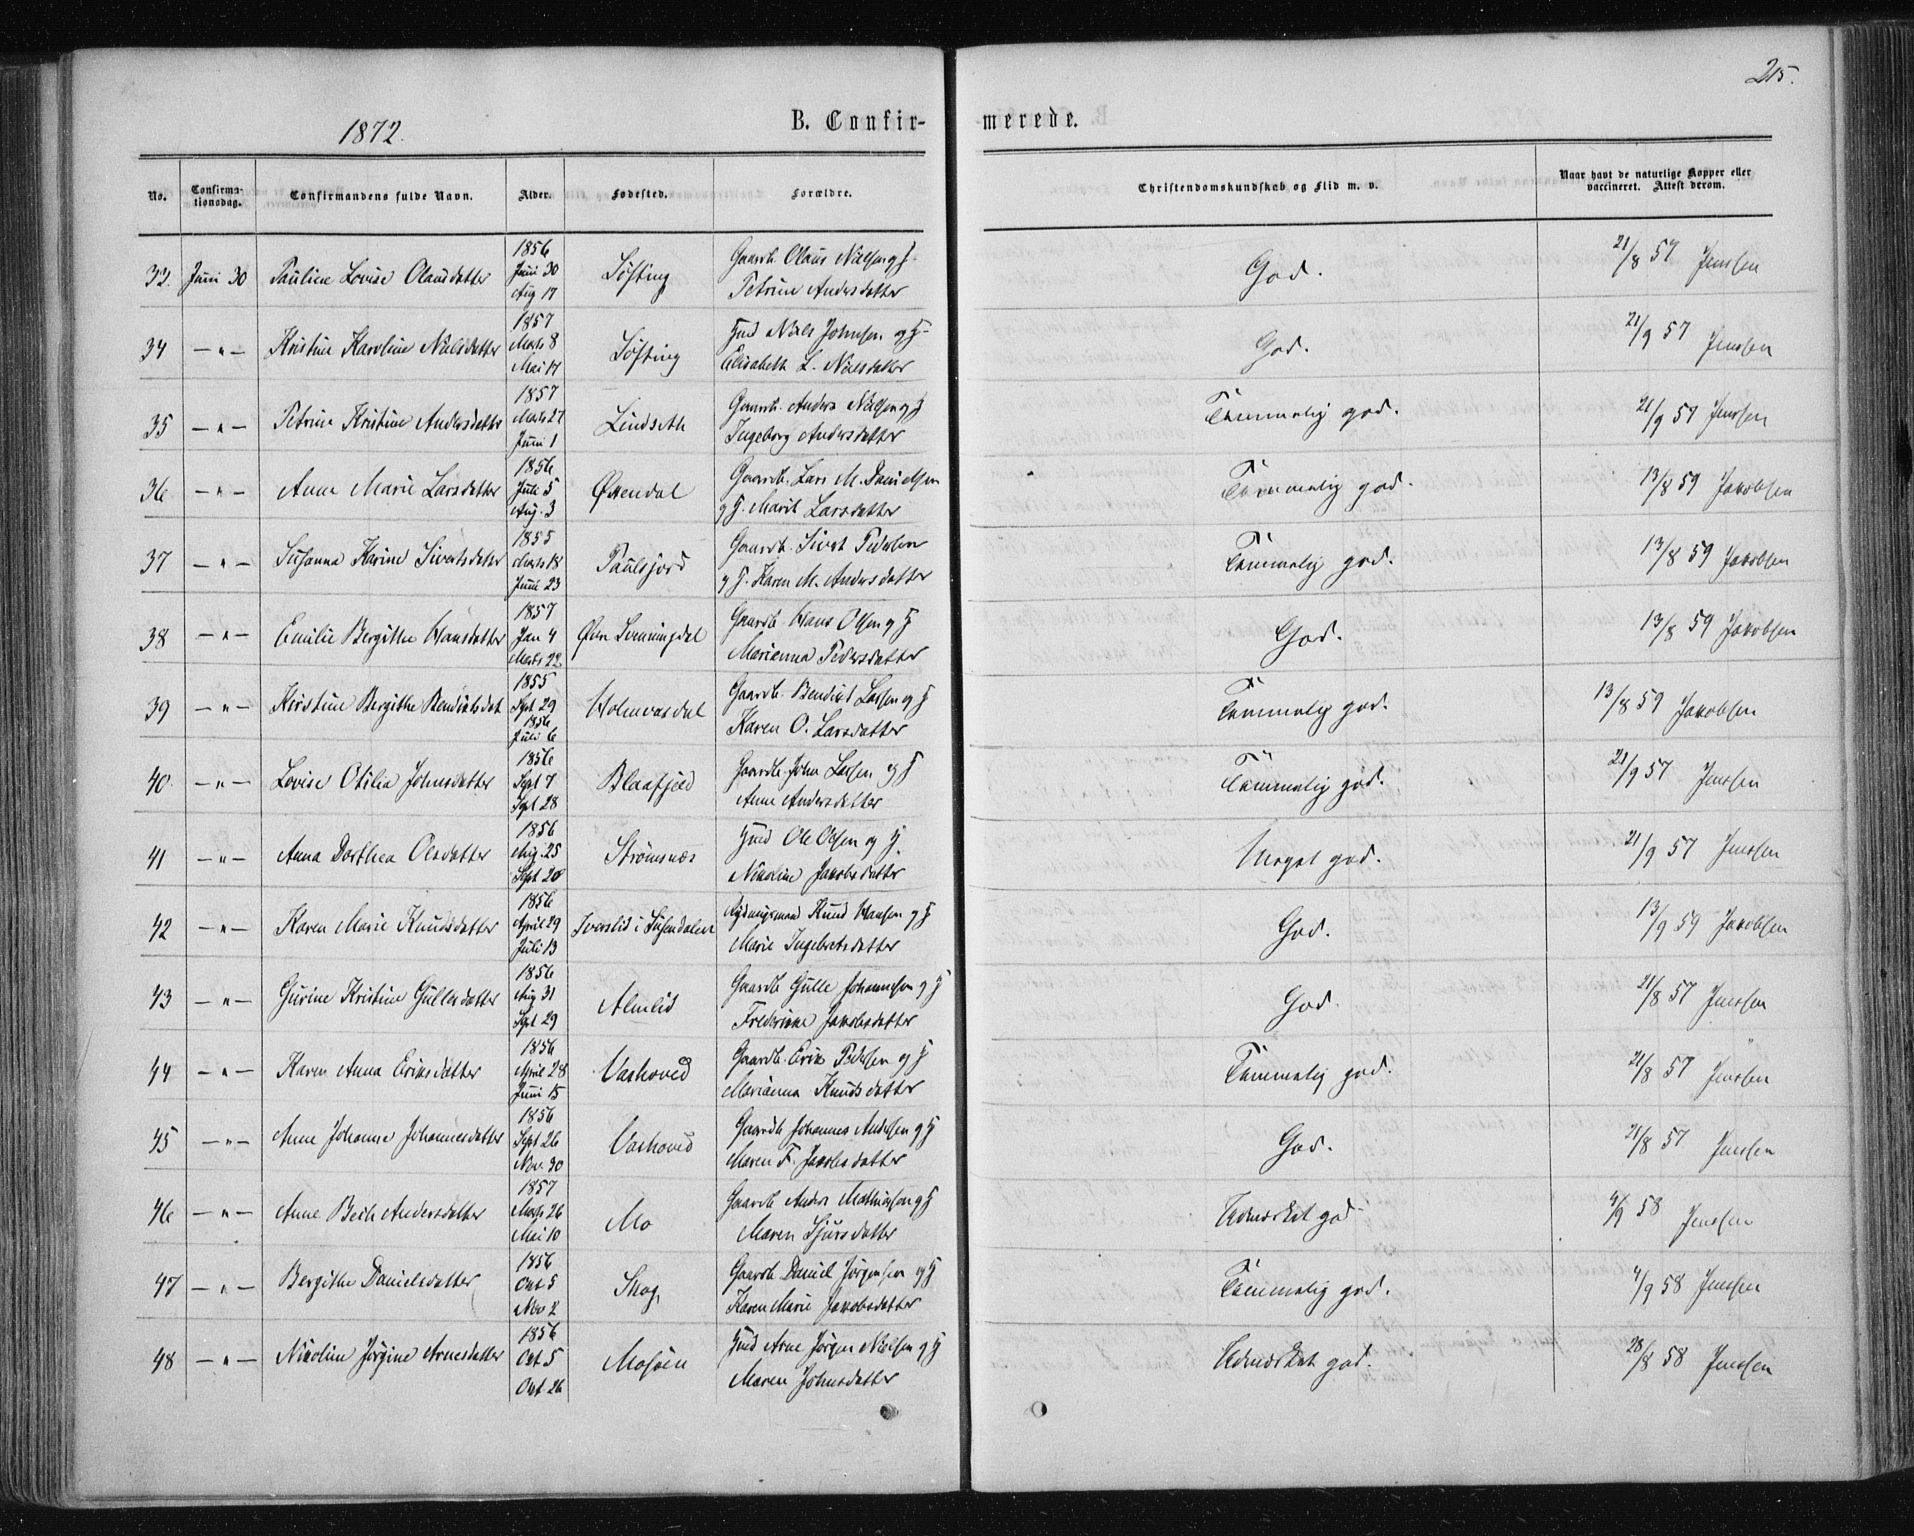 215.
1872.
B. Confirmerede.
No. Confirmationsdag. Confirmandens fulde Navn. Alder. Fødested. Forældre. Christendomskundskab og Flid m. v. Naar havt de naturlige Kopper eller vaccineret. Attest derom.
1856
32. Juni 30 Pauline Lovise Olausdatter Juni 30 Søfting Gaardb. Olaus Nielsen og H. God. 21/8 57 Jenssen
Aug 17 Petrine Andersdatter
1857
34 — " — Kristine Karoline Nielsdatter Marts 8 Søfting Hmd Niels Johnsen og H. God. 21/9 57 Jenssen
Mai 17 Elisabeth L. Nielsdatter
1857
35 — " — Petrine Kristine Andersdatter Marts 27 Lindseth Gaardb. Anders Nielsen og H Temmelig god. 21/9 57 Jenssen
Juni 1 Ingeborg Andersdatter
1856
36 — " — Anne Marie Larsdatter Juli 5 Øxendal Gaardb. Lars M. Danielsen Temmelig god. 13/8 59 Jakobsen
Aug. 3 og H. Marit Larsdatter
1855
37 — " — Susanna Karine Sivertsdatter Marts 18 Paulsjord Gaardb. Sivert Pedersen Temmelig god. 13/8 59 Jakobsen
Juni 23 og H. Karen M. Andersdatter
1857
38 — " — Emilie Bergithe Hansdatter Jan 4 Øvre Svenningdal Gaardb Hans Olsen og H God. 13/8 59 Jakobsen
Marts 22 Marianna Pedersdatter
1855
39 — " — Kristine Bergithe Bendiktsdat Sept 29 Holmvasdal Gaardb. Bendikt Larsen og H Temmelig god. 13/8 59 Jakobsen
1856
Juli 6 Karen O. Larsdatter
1856
40. — " — Lovise Otilia Johnsdatter Sept 7 Blaafjeld Gaardb. John Larsen og H Temmelig god. 21/9 57 Jenssen
Sept 28 Anne Andersdatter
1856
41 — " — Anna Dorthea Olsdatter Aug. 25 Strømsnæs Hmd Ole Olsen og H. Meget god. 21/9 57 Jenssen
Sept 20 Nikoline Jakobsdatter
1856
42 — " — Karen Marie Knudsdatter April 29 Iverslid i Susendalen Rydningsmand Knud Hansen og H God. 13/9 59 Jakobsen
Juli 13 Marie Ingebretsdatter
1856
43 — " — Gurine Kristine Gullesdatter Aug 31 Almlid Gaardb Gulle Johannesen og H God. 21/8 57 Jenssen
Sept 29 Frederikke Jakobsdatter
1856
44 — " — Karen Anna Eriksdatter April 28 Vashoved Gaardb. Erik Pedersen og H Temmelig god. 21/8 57 Jenssen
Juni 15 Marianna Knudsdatter
1856
45 — " — Anne Johanne Johannesdatter Sept 26 Vashoved Gaardb Johannes Andersen og H God. 21/8 57 Jenssen
Nov. 30 Maren F. Jakobsdatter
1857
46 — " — Anne Berit Andersdatter Marts 26 Mo Gaardb Anders Mathiassen og H Udmærket god 4/9 58 Jenssen
Mai 10 Maren Sjursdatter
1856
47 — " — Bergithe Danielsdatter Okt 5 Skog Gaardb Daniel Jørgensen og H Temmelig god. 4/9 58 Jenssen
Nov 2 Karen Marie Jakobsdatter
1856
48 — " — Nikoline Jørgine Arnesdatter Okt 5 Mosjøen Hmd Arne Jørgen Nielsen og H Udmærket god. 28/8 58 Jenssen
Okt 26 Maren Johnsdatter